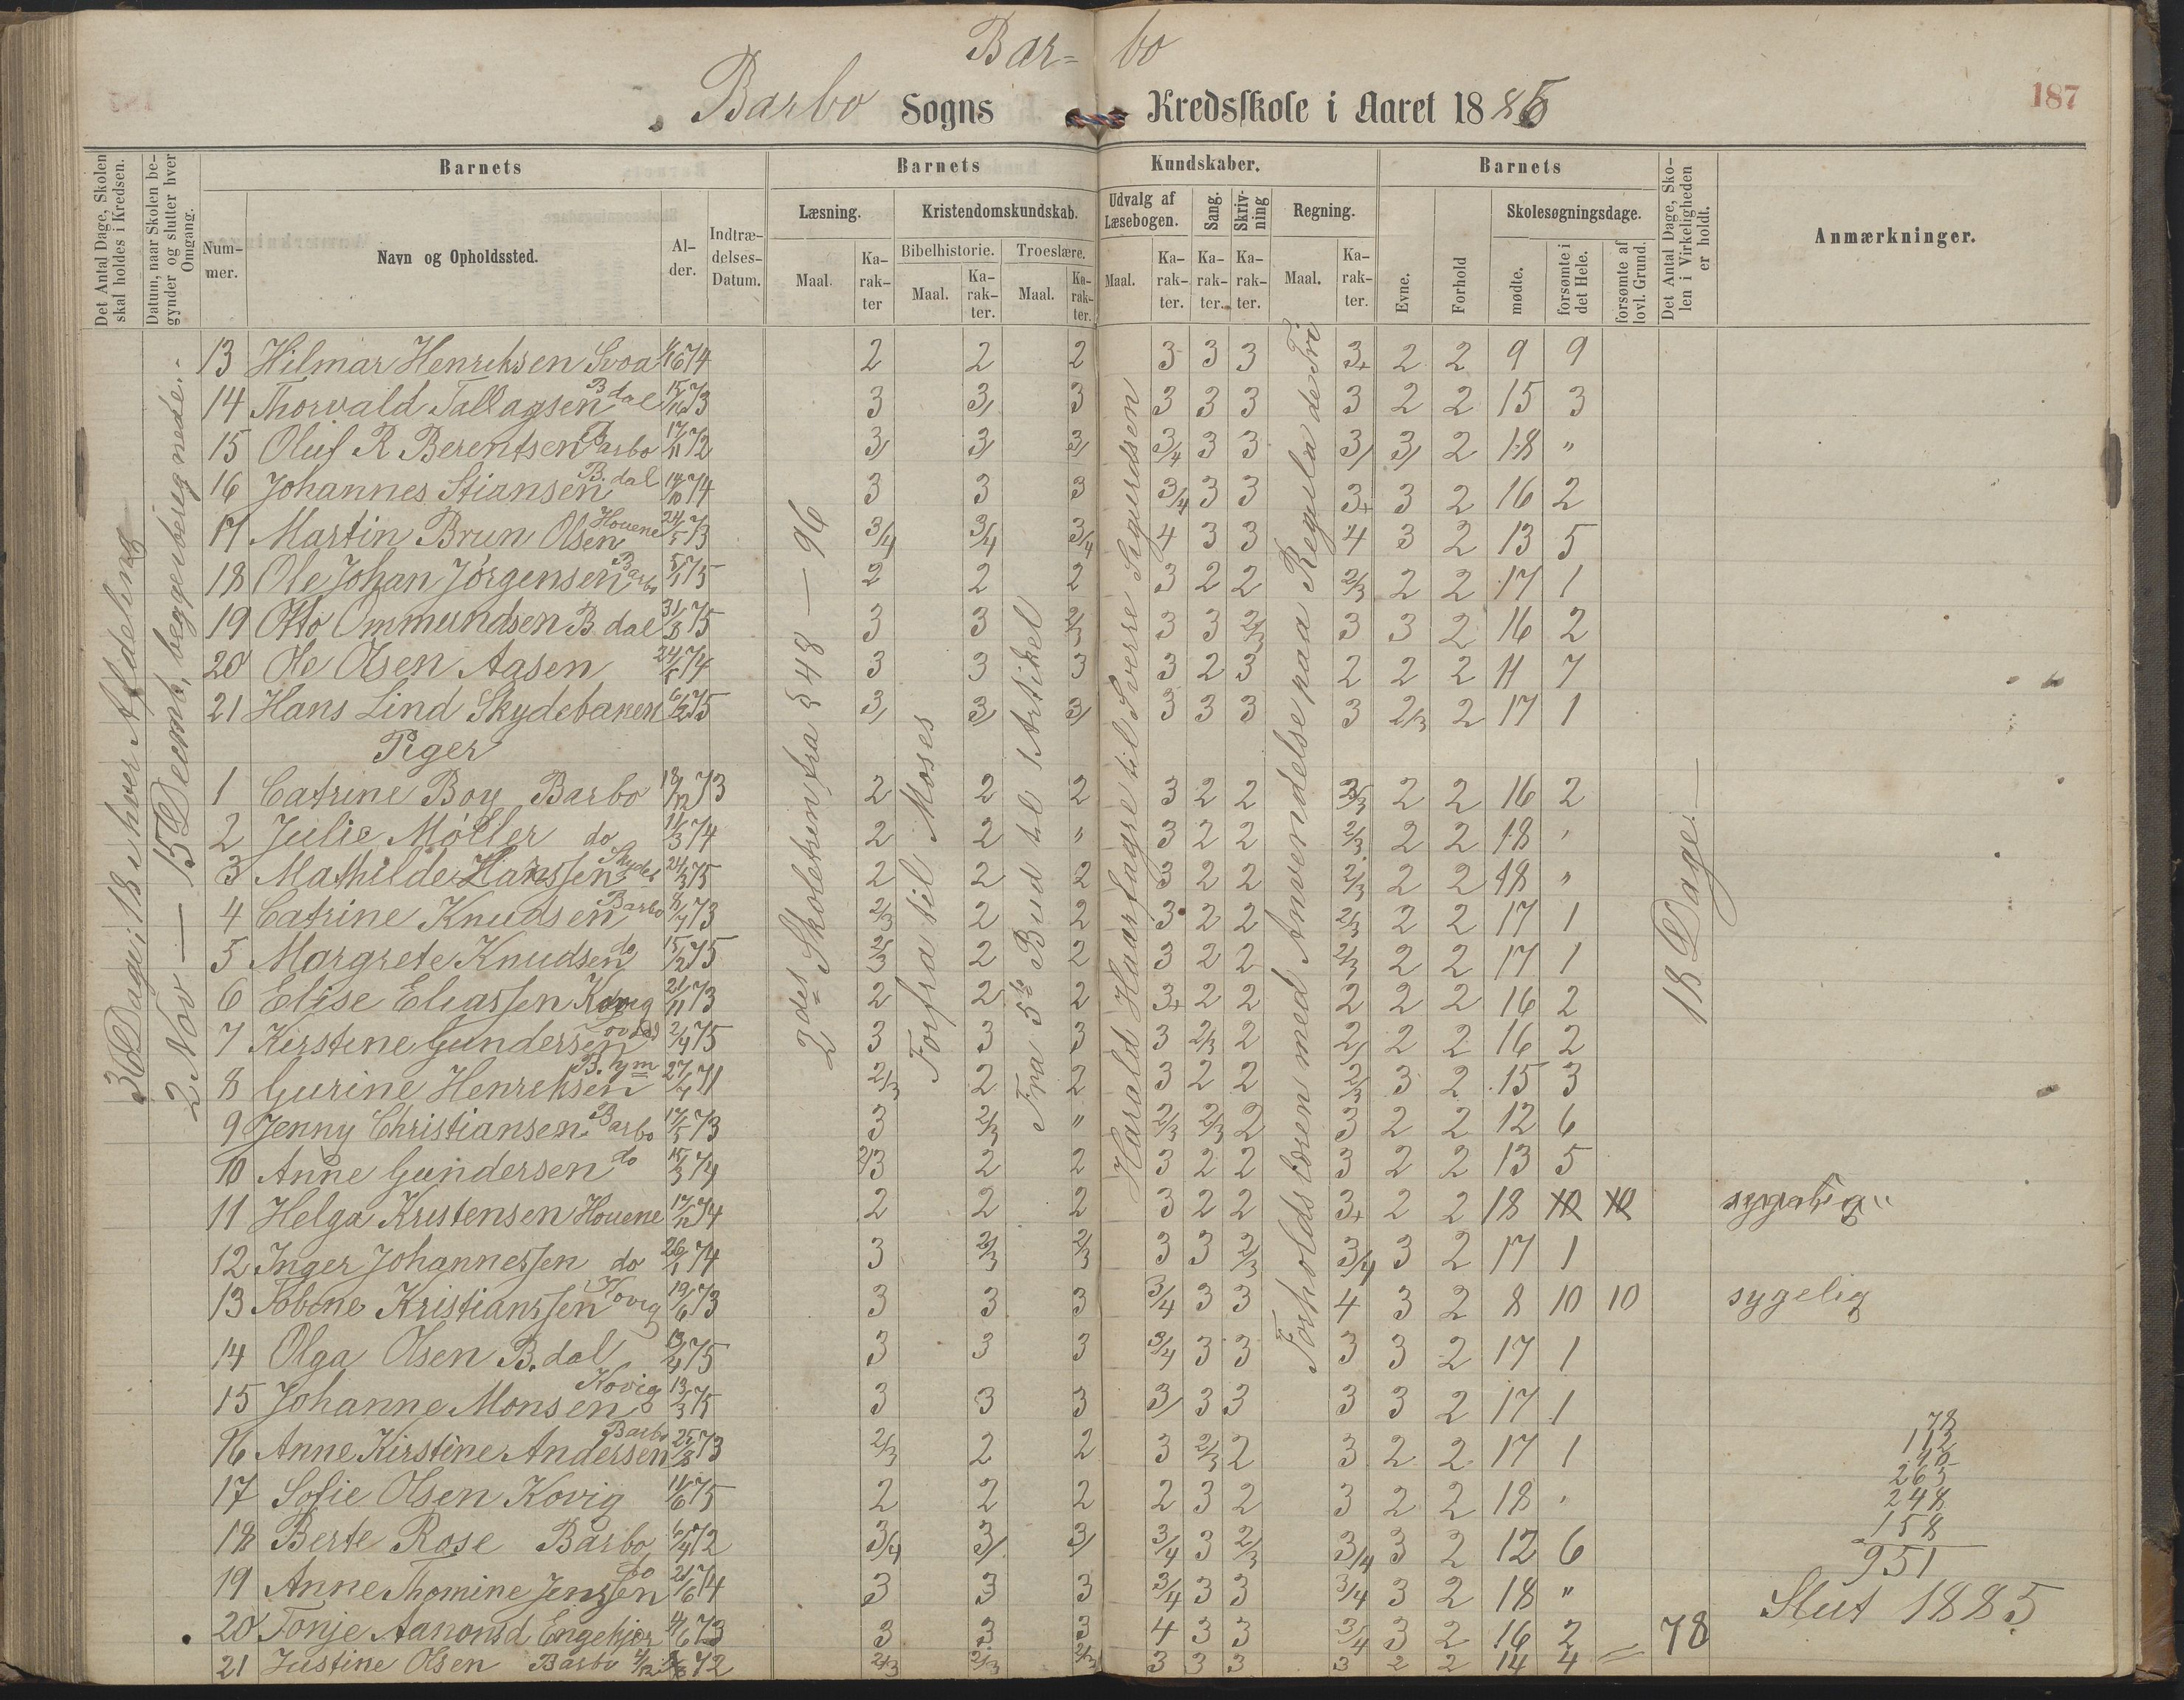 Bar= bo
187
Barbo Sogns Kredsskole i Aaret 1885
Det Antal Dage, Skolen skal holdes i Kredsen.
Datum, naar Skolen begynder og slutter hver Omgang.
Barnets
Nummer.
Navn og Opholdssted.
Alder.
Indtrædelses-Datum.
Barnets Kundskaber.
Læsning.
Maal.
Karakter
Kristendomskundskab.
Bibelhistorie.
Maal.
Karakter.
Troeslære.
Maal.
Karakter.
Udvalg af Læsebogen.
Maal.
Karakter.
Sang.
Karakter.
Skrivning
Karakter.
Regning.
Maal.
Karakter.
Barnets
Evne.
Forhold
Skolesøgningsdage.
mødte.
forsømte i det Hele.
forsømte af lovl. Grund.
Det Antal Dage, Skolen i Virkeligheden er holdt.
Anmærkninger.
36 Dage: 18 i hver Afdeling
2 Nov — 15 Decmb, begge iberegnede.
2des Skoletrin fra § 48 — 96
Forfra til Moses
Fra 5te Bud til 1 Artikel
Harald Haarfagre til Sverre Sigurdsen
Forholdslæren med Anvendelse paa Regula de Tri
18 Dage.
13 Hilmar Henriksen Svoa 74 2 2 2 3 3 3 3+ 2 2 9 9
14 Thorvald Tallagsen B dal 73 3 3/ 3 3 3 3 3 2 2 15 3
15 Oluf R Berentsen Barbo 17/11 72 3/ 3/ 3/ 3/4 3 3 3/ 3/ 2 18 "
16 Johannes Stiansen B. dal 14/10 74 3 3 3 3/4 3 3 3+ 3 2 16 2
17 Martin Brun Olsen Houene 24/5 73 3/4 3/4 3/4 4 3 3 4 3 2 13 5
18 Ole Johan Jørgensen Barbo 5/1 75 2 2 2 3 2 2 2/3 2 2 17 1
19 Otto Ommundsen B dal 31/3 75 3 3 2/3 3 3 2/3 3 3 2 16 2
20 Ole Olsen Aasen 74 3 3 3 3 2 3 2 2 2 11 7
21 Hans Lind Skydebanen 6/2 75 3/ 3/ 3/ 3 3 3 3 2/3 2 17 1
Piger
1 Catrine Boy Barbo 18/12 73 2 2 2 3 2 2 2 2 16 2
2 Julie Møller do 11/3 74 2 2 " 3 2 2 2/3 2 2 18 "
3 Mathilde Hanssen Skydeb 24/3 75 2 2 2 3 2 2 2/3 2 2 18 "
4 Catrine Knudsen Barbo 73 2/3 2 2 3 2 2 2/3 2 2 17 1
5 Margrete Knudsen do 15/12 75 2/3 2 2 3 2 2 2/3 2 2 17 1
6 Elise Eliassen Kovig 21/11 73 2 2 2 3+ 2 2 2 2 2 16 2
7 Kirstine Gundersen 75 3 3 3 3 2/3 2 2/ 2 2 16 2
8 Gurine Henriksen B. hjm 71 2/3 2 2 3 2 2 2/3 3 2 15 3
9 Jenny Christiansen Barbo 17/5 73 3 2/3 " 2/3 2/3 2 3 2 2 12 6
10 Anne Gundersen do 15/3 74 2/3 2 2 3 2 2 3 2 2 13 5
11 Helga Kristensen Houene 17/12 74 2 2 2 3 2 2 3+ 2 2 18 10 10 sygelig "
12 Inger Johannessen do 26/1 74 3 2/3 2/3 3 3 2/3 3/4 3 2 17 1
13 Tobine Kristianssen Kovig 19/6 73 3 3 3 3/4 3 3 4 3 2 8 10 10 sygelig
14 Olga Olsen B. dal 13/4 75 3 3 3 3/4 3 3 3 3 2 17 1
15 Johanne Monsen Kovig 13/3 75 3 3 3 3/ 3 3 3 3 2 17 1
16 Anne Kirstine Andersen Barbo 25/8 73 2/3 2 2 3 2/3 2 3 2 2 17 1
17 Sofie Olsen Kovig 11/6 75 2 2 2 2 3 2 3 2 2 18 "
18 Berte Rose Barbo 6/4 72 3/4 3/ 3/ 3/4 3 2/3 3/4 3 2 12 6
19 Anne Thomine Jenssen do 21/6 74 3 3 3 3/4 3 3 3/4 3 2 18 "
20 Tonje Aanonsd Engekjær 4/6 73 3 3 3 4 3 3 3/4 3 2 16 2
21 Justine Olsen Barbo 72 2/3 2/3 2/3 3 3 3 3 2 2 14 4 = 78
78
112
265
248
158
951
Slut 1885